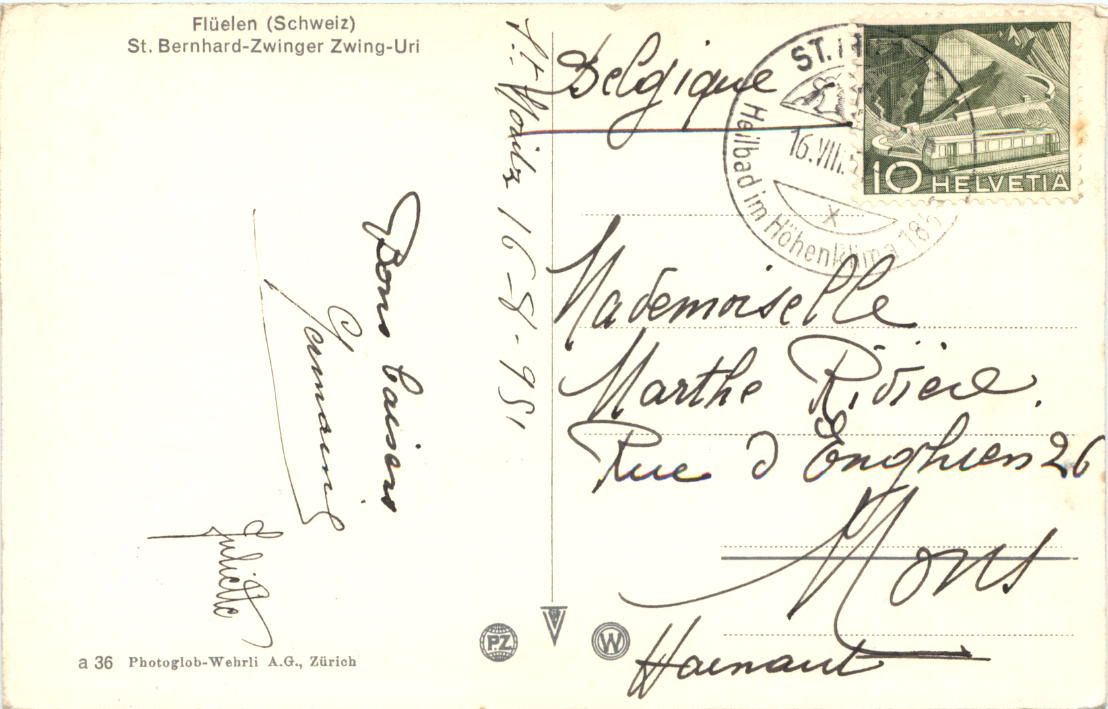 Flüelen (Schweiz)
St. Bernhard-Zwinger Zwing-Uri
St Moritz 16-8-951
Bons baisers
Germaine
Juliette
a 36 Photoglob-Wehrli A.G., Zürich
PZ
W
Belgique
ST.
16.VIII.5
Heilbad im Höhenklima 18
10 HELVETIA
Mademoiselle
Marthe Rivière.
Rue d'Enghien 26
Mons
Hainaut